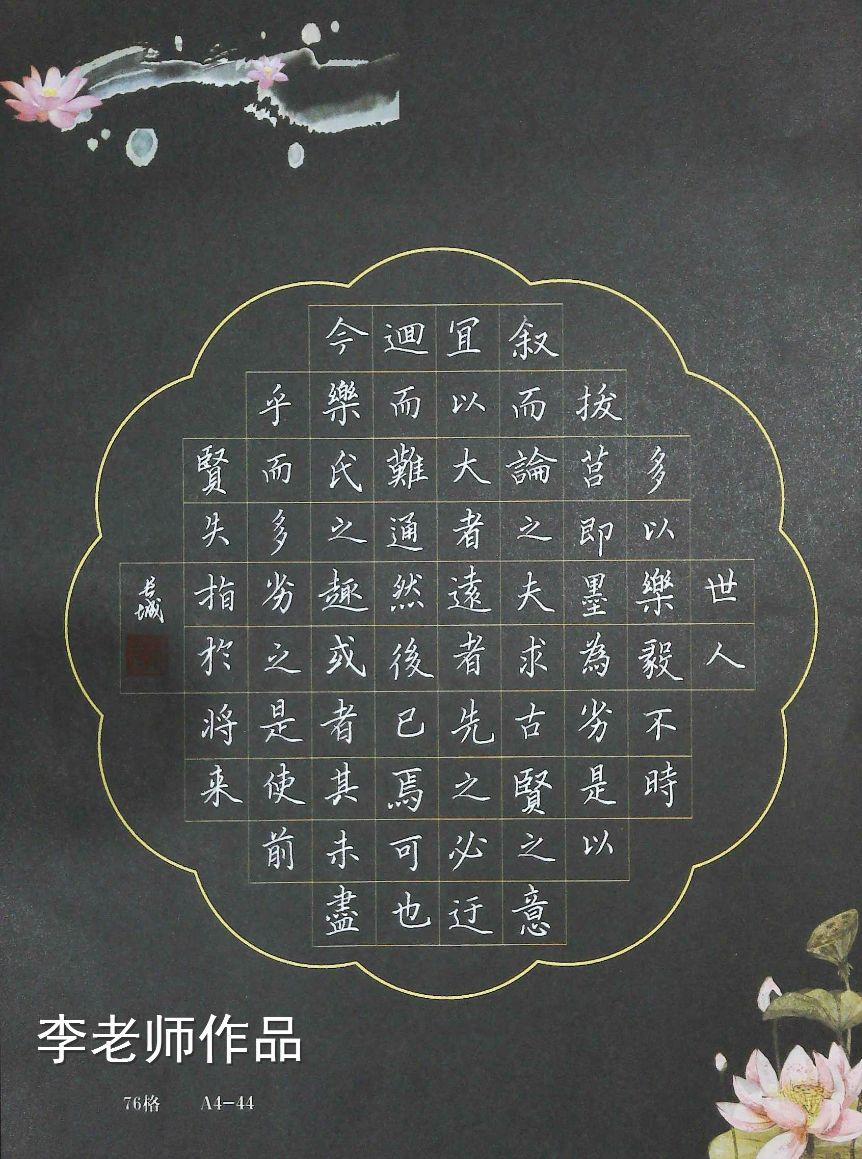 世人
多以樂毅不時
拔莒即墨為劣是以
叙而論之夫求古賢之意
宜以大者遠者先之必迂
迴而難通然後已焉可也
今樂氏之趣或者其未盡
乎而多劣之是使前
賢失指於将来
长城
李老师作品
76格 A4-44